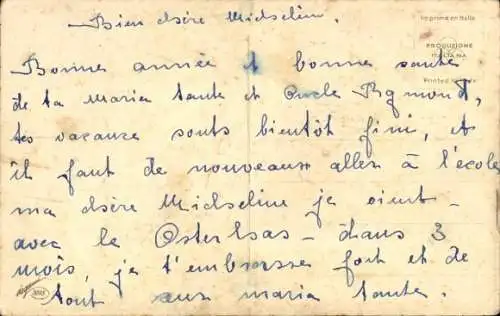 Bien chère Michseline.
Imprimé en Italie
PRODUZIONE
ITALIANA
Printed in Italy
Bonne année & bonne sante
de ta Maria tante et oncle Rgmond,
tes vacance sonts bientôt fini, et
il faut de nouveaux aller à l'école
ma chère Michseline je vient -
avec le Osterhas - dans 3
mois, je t'embrasse fort et de
tout aux maria tante.